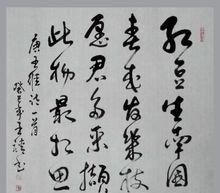 红豆生南国
春来发几枝
愿君多采撷
此物最相思
唐王维诗一首